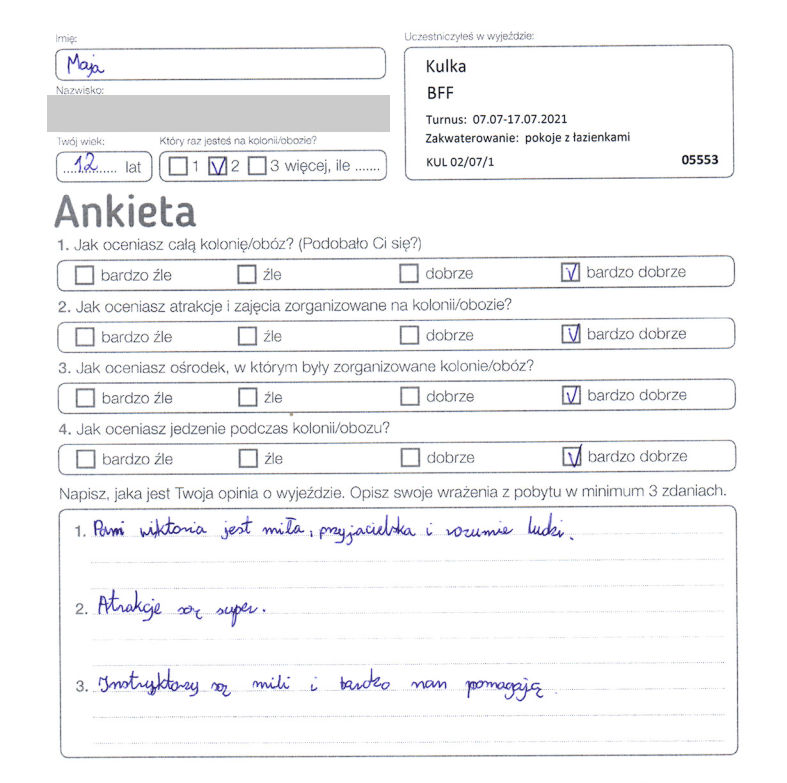 Imię:
Maja
Nazwisko:
Twój wiek:
Który raz jesteś na kolonii/obozie?
12 lat
1 2 3 więcej, ile .......
Uczestniczyłeś w wyjeździe:
Kulka
BFF
Turnus: 07.07-17.07.2021
Zakwaterowanie: pokoje z łazienkami
KUL 02/07/1
05553
Ankieta
1. Jak oceniasz całą kolonię/obóz? (Podobało Ci się?)
bardzo źle źle dobrze bardzo dobrze
2. Jak oceniasz atrakcje i zajęcia zorganizowane na kolonii/obozie?
bardzo źle źle dobrze bardzo dobrze
3. Jak oceniasz ośrodek, w którym były zorganizowane kolonie/obóz?
bardzo źle źle dobrze bardzo dobrze
4. Jak oceniasz jedzenie podczas kolonii/obozu?
bardzo źle źle dobrze bardzo dobrze
Napisz, jaka jest Twoja opinia o wyjeździe. Opisz swoje wrażenia z pobytu w minimum 3 zdaniach.
1. Pani wiktoria jest miła, przyjacielska i rozumie ludzi.
2. Atrakcje są super.
3. Instryktorzy są mili i bardzo nam pomagają.